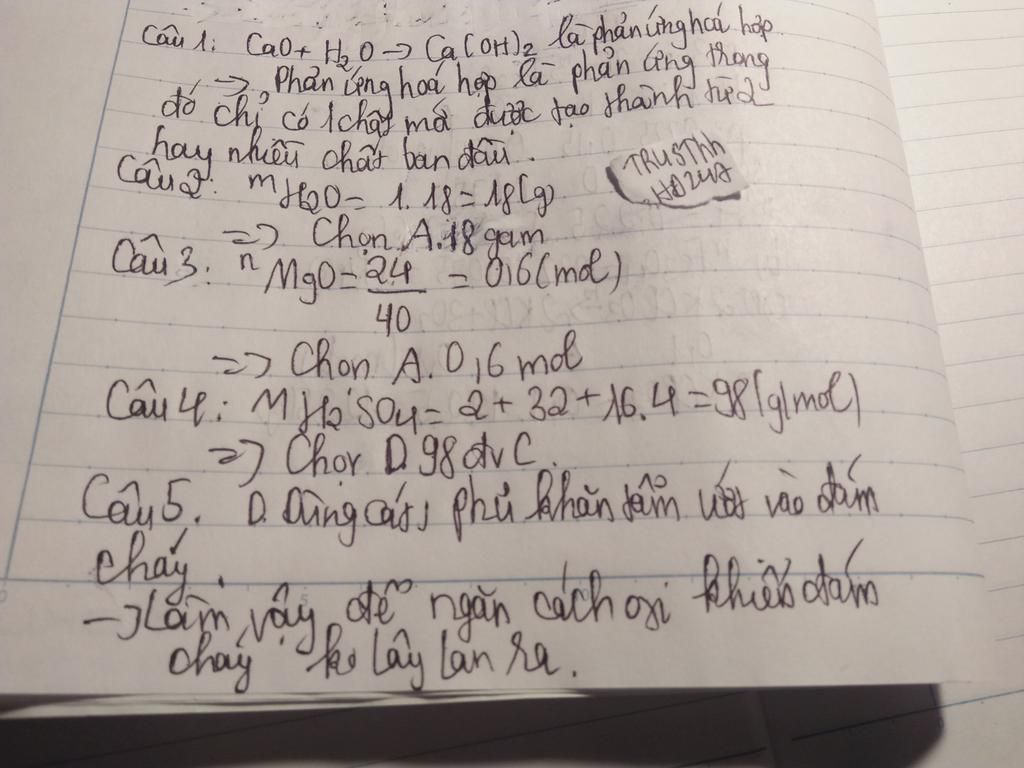 Câu 1: CaO + H₂O → Ca(OH)₂ là phản ứng hoá hợp.
→ Phản ứng hoá hợp là phản ứng trong
đó chỉ có 1 chất mới được tạo thành từ 2
hay nhiều chất ban đầu.
TRUSThh
HD247
Câu 2: mH₂O = 1.18 = 18(g)
=> Chọn A. 18 gam
Câu 3: nMgO = 24/40 = 0,6(mol)
=> Chọn A. 0,6 mol
Câu 4: MH₂SO₄ = 2 + 32 + 16.4 = 98(g/mol)
=> Chọn D. 98 đvC.
Câu 5. D. Dùng cát, phủ khăn tẩm ướt vào đám
cháy.
→ Làm vậy để ngăn cách oxi khiến đám
cháy ko lây lan ra.